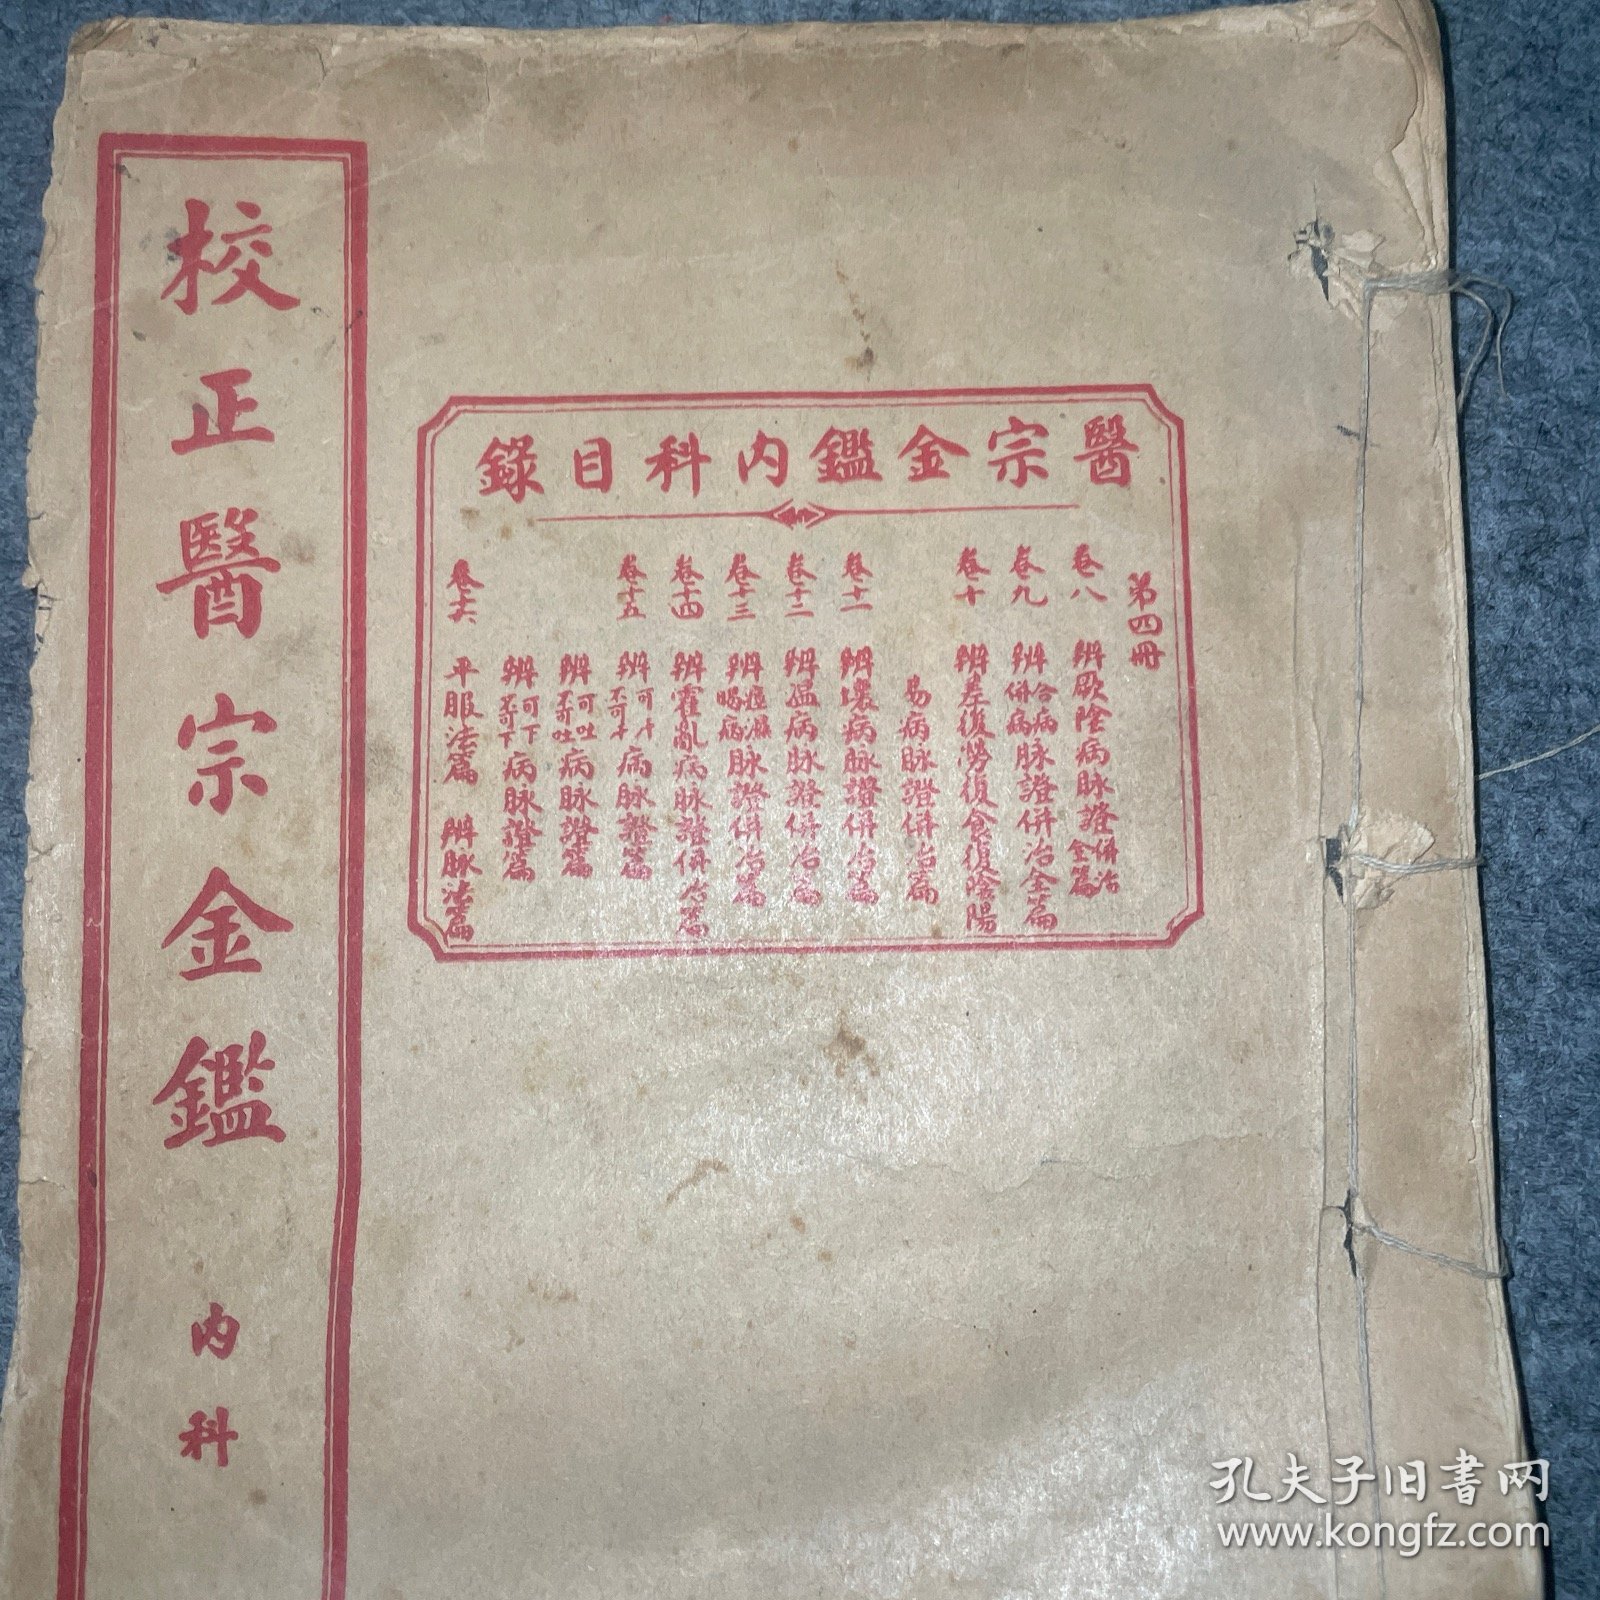 校正醫宗金鑑 內科
醫宗金鑑內科目錄
第四冊
卷八 辨厥陰病脉證併治全篇
卷九 辨合病併病脉證併治全篇
卷十 辨差後勞復食復陰陽
易病脉證併治篇
卷十一 辨壞病脉證併治篇
卷十二 辨温病脉證併治篇
卷十三 辨痙濕暍病脉證併治篇
卷十四 辨霍亂病脉證併治篇
卷十五 辨可汗不可汗病脉證篇
辨可吐不可吐病脉證篇
辨可下不可下病脉證篇
卷十六 平脈法篇 辨脉法篇
孔夫子旧书网
www.kongfz.com